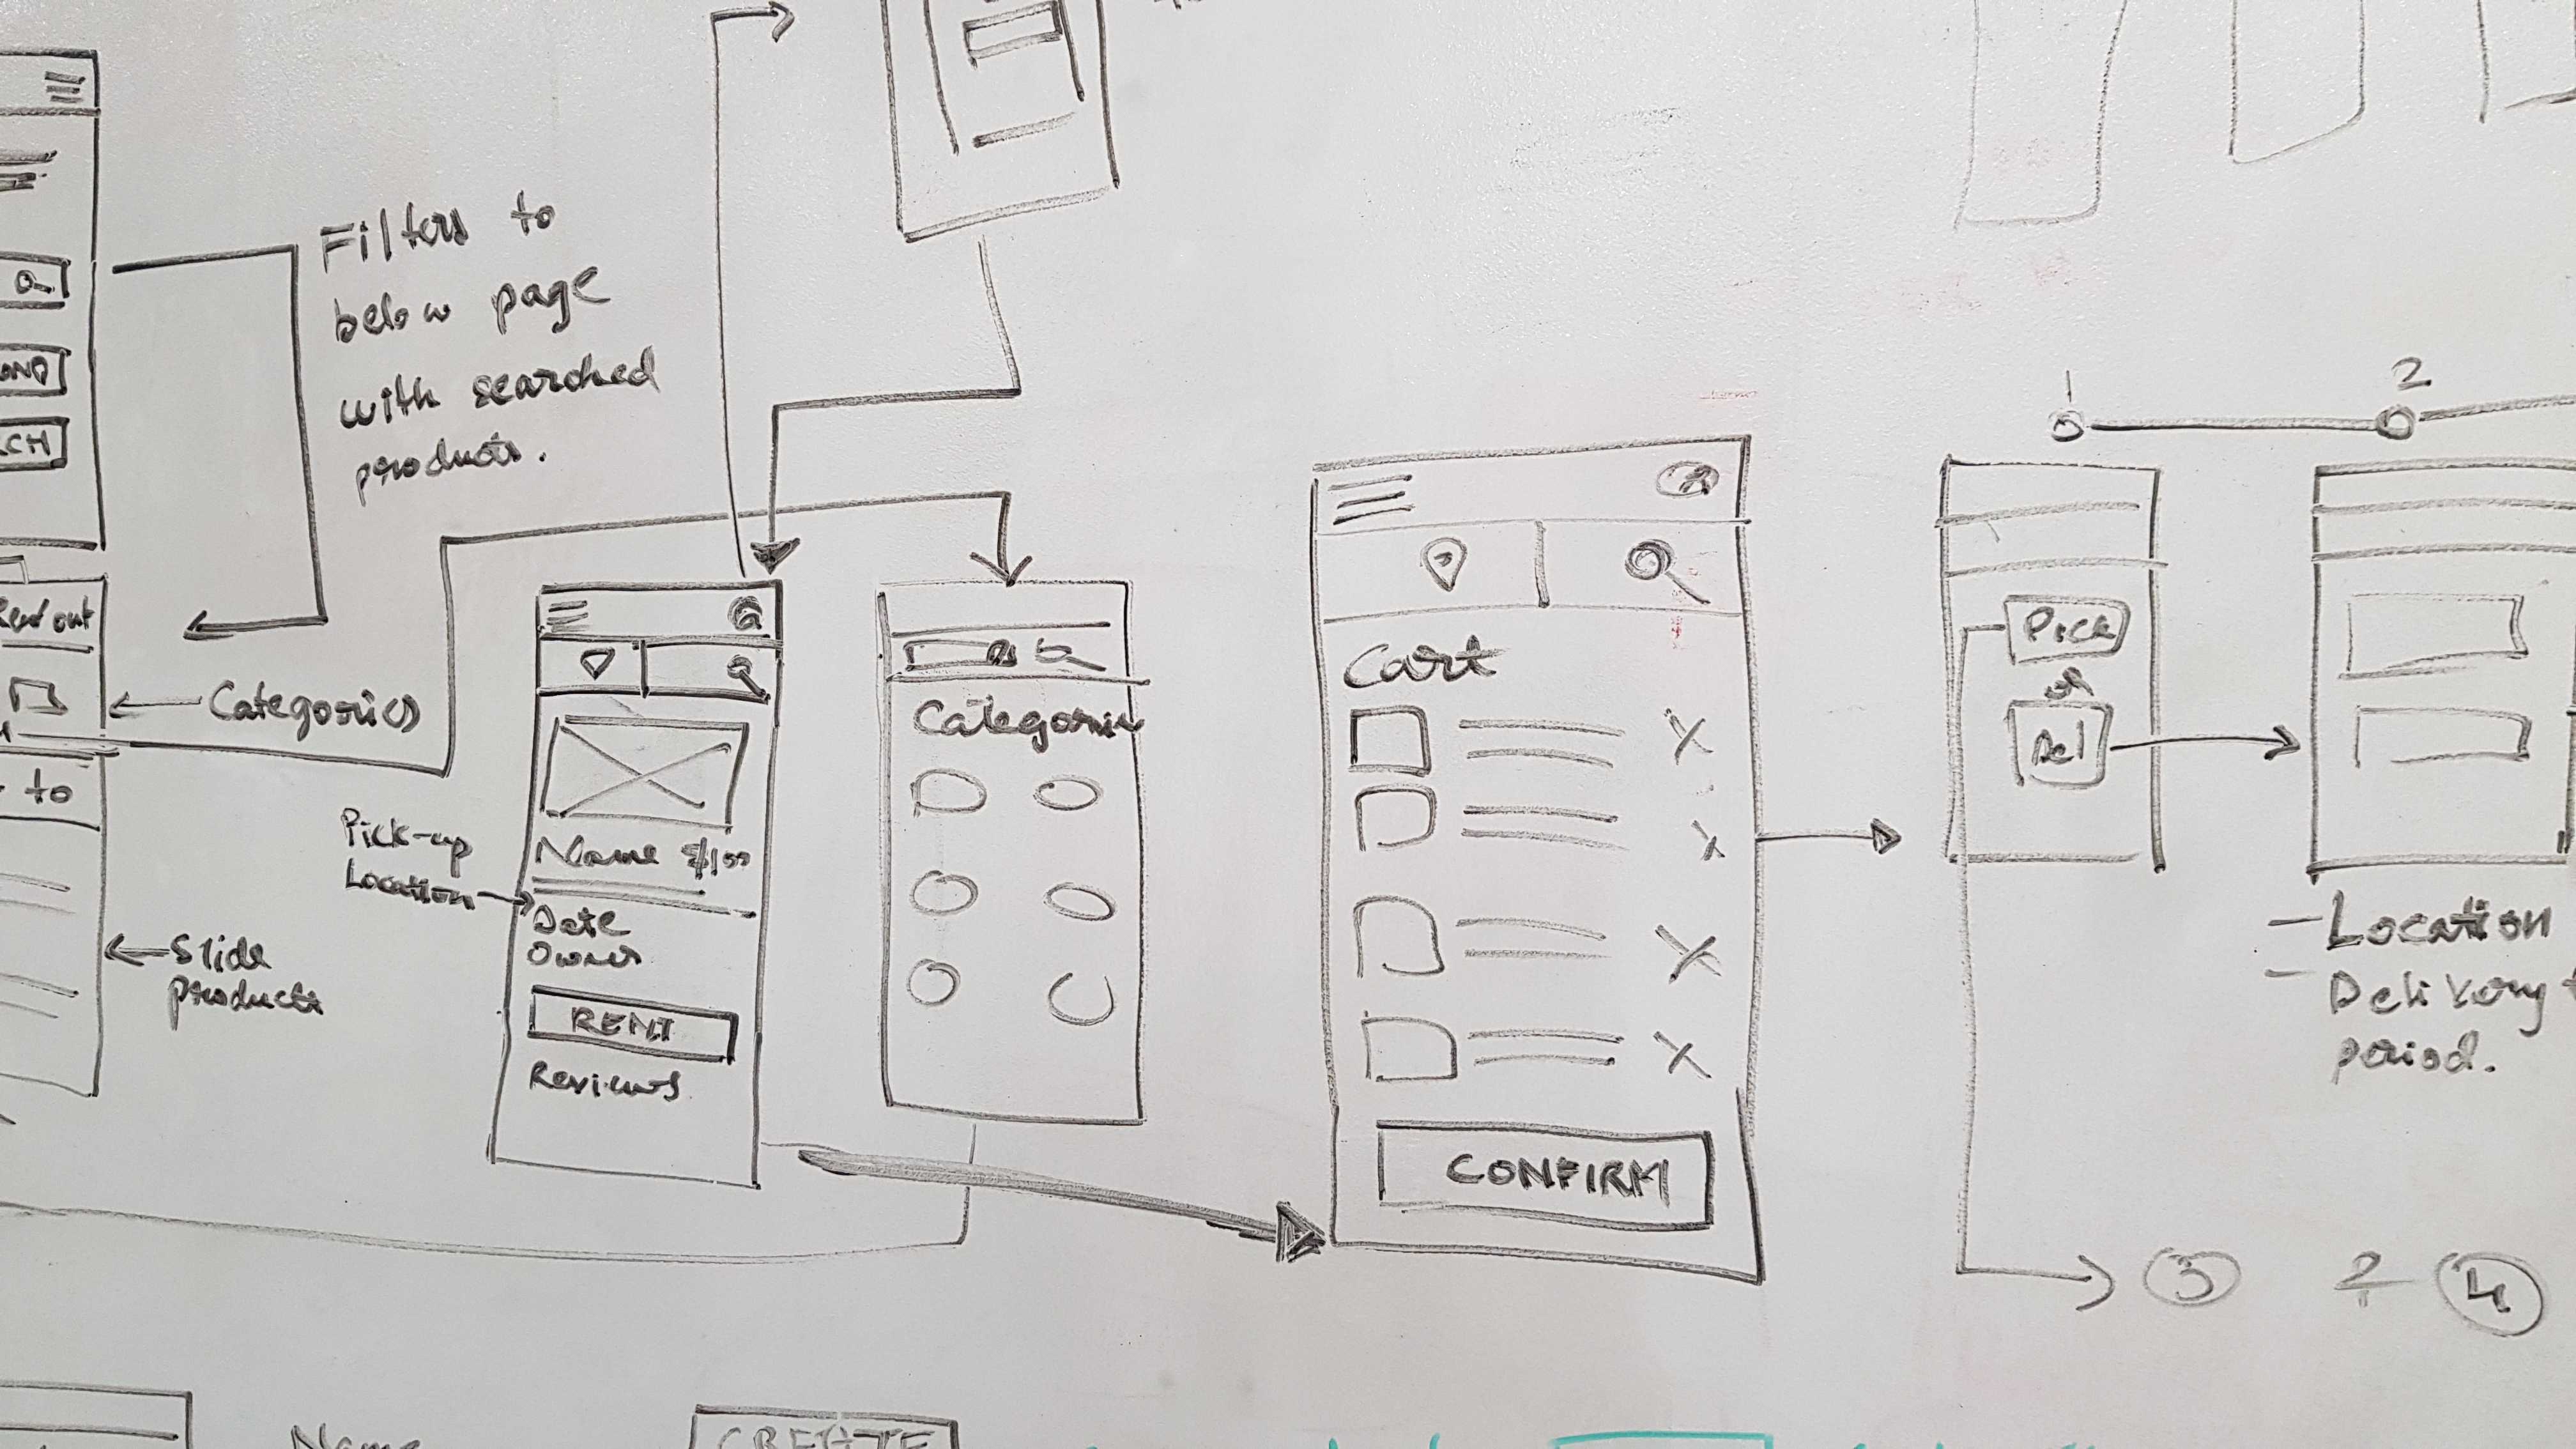 Filters to
below page
with searched
products.
Rent out
Categories
to
Slide
products
Pick-up
Location
Name $100
Date
Owner
RENT
Reviews
Categorie
Cart
CONFIRM
1
2
Pick
or
Del
- Location
- Delivery
period.
3
2
4
Name
CREATE